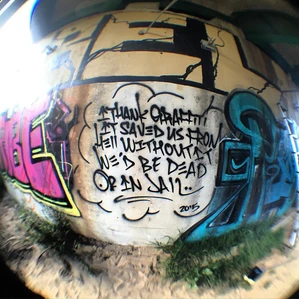 I THANK GRAFFITI
IT SAVED US FROM
HELL WITHOUT IT
WE'D BE DEAD
OR IN JAIL..
2015